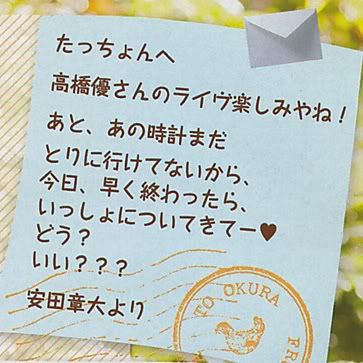 たっちょんへ
高橋優さんのライヴ楽しみやね！
あと、あの時計まだ
とりに行けてないから、
今日、早く終わったら、
いっしょについてきてー♥
どう？
いい？？？
安田章大より
TO OKURA